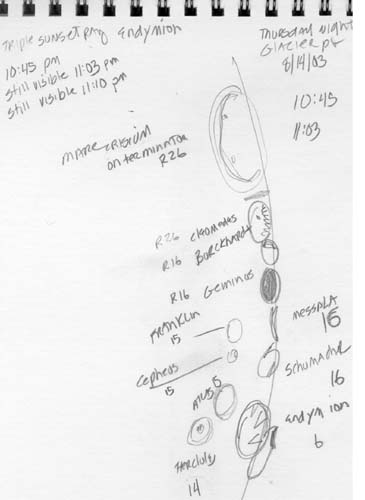 Triple sunset ray Endymion
10:45 pm
still visible 11:03 pm
still visible 11:10 pm
Thursday night
Glacier pt
8/14/03
10:45
11:03
mare crisium
on terminator
R26
R26 cleomades
R16 Burckhardt
R16 Geminus
Franklin
15
Cepheus
15
Messala
16
Schumacher
16
Endymion
6
Hercules
14